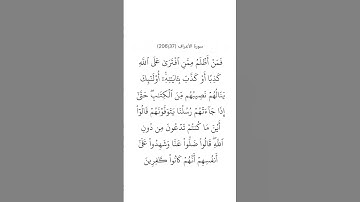 سورة الأعراف (37|206)
فَمَنۡ أَظۡلَمُ مِمَّنِ ٱفۡتَرَىٰ عَلَى ٱللَّهِ
كَذِبًا أَوۡ كَذَّبَ بِـَٔايَٰتِهِۦٓۚ أُوْلَٰٓئِكَ
يَنَالُهُمۡ نَصِيبُهُم مِّنَ ٱلۡكِتَٰبِۖ حَتَّىٰٓ
إِذَا جَآءَتۡهُمۡ رُسُلُنَا يَتَوَفَّوۡنَهُمۡ قَالُوٓاْ
أَيۡنَ مَا كُنتُمۡ تَدۡعُونَ مِن دُونِ
ٱللَّهِۖ قَالُواْ ضَلُّواْ عَنَّا وَشَهِدُواْ عَلَىٰٓ
أَنفُسِهِمۡ أَنَّهُمۡ كَانُواْ كَٰفِرِينَ